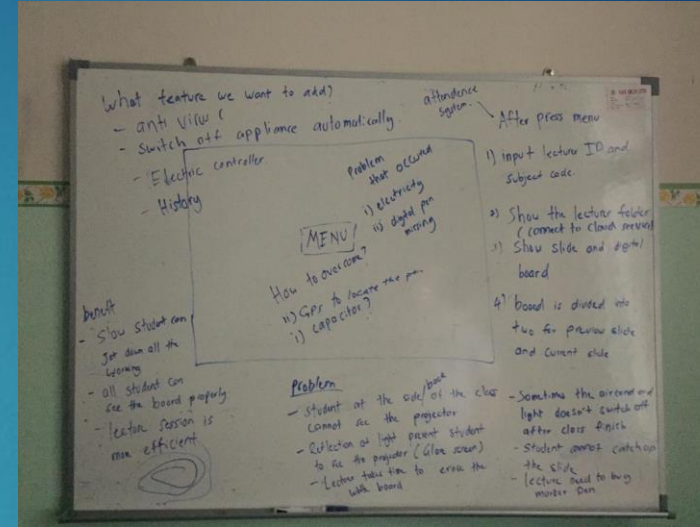 What feature we want to add?
- anti viru
- Switch off appliance automatically.
- Electric controller.
- History
attendence
system.
After press menu
1) input lecture ID and
subject code.
2) Show the lecturer folder
(connect to cloud
3) Show slide and digital
board
4) board is divided into
two for preview slide
and current slide
Problem
that occured
i) electricity
ii) digital pen
missing
MENU
How to overcome?
ii) GPS to locate the pen
i) capacitor?
benefit
- Slow student can
jot down all the
working
- all student can
see the board properly
- lecture session is
more efficient
Problem
- Student at the side/back of the class
cannot see the projector
- Reflection of light prevent student
to see the projector (Glare screen)
- Lecture take time to erase the
white board
- Sometimes the aircond and
light doesn't switch off
after class finish
- Student cannot catch up
the slide
- lecture need to buy
marker pen